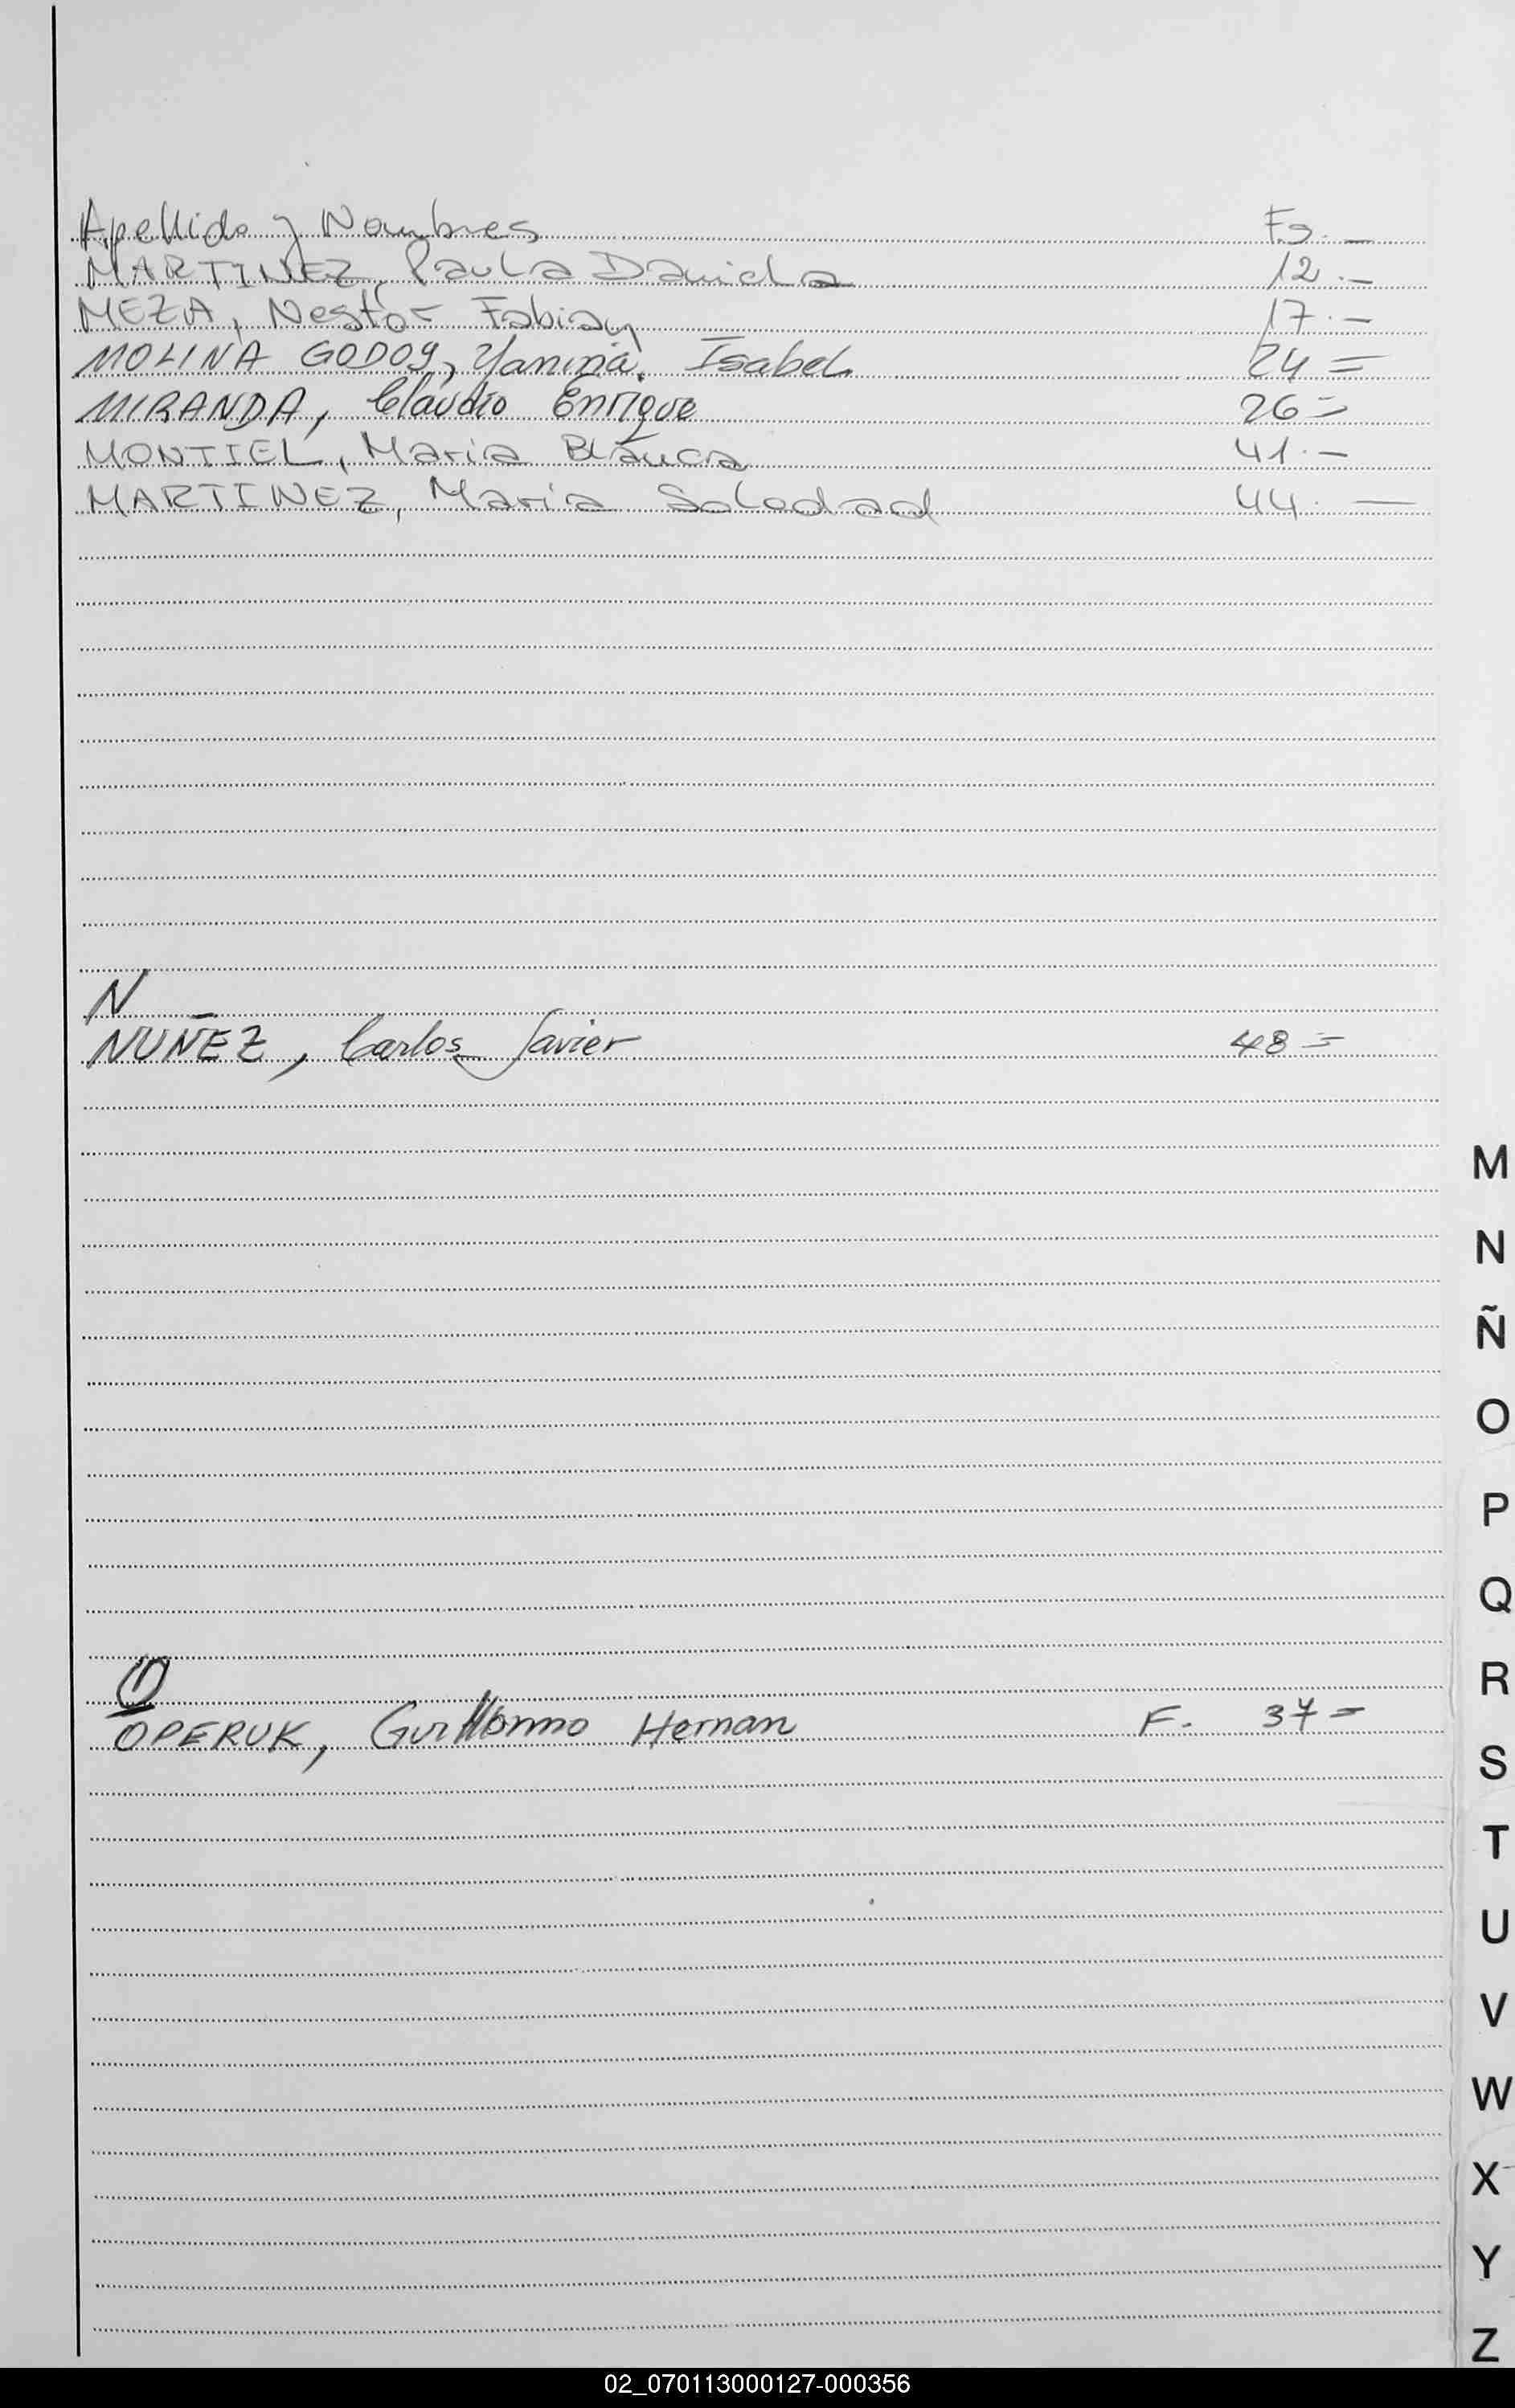 Apellido y Nombres Fs. —
MARTINEZ, Paula Daniela 12.—
MEZA, Nestor Fabian 17.—
MOLINA GODOY, Yanina Isabel. 24=
MIRANDA, Claudio Enrique 26=
MONTIEL, Maria Blanca 41.—
MARTINEZ, Maria Soledad 44. —
N
NUÑEZ, Carlos Javier 48=
O
OPERUK, Guillermo Hernan F. 37=
M
N
Ñ
O
P
Q
R
S
T
U
V
W
X
Y
Z
02_070113000127-000356